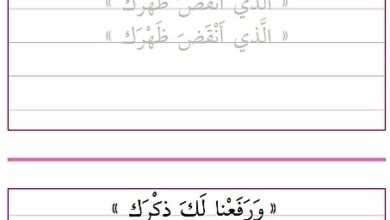 « الَّذِي أَنْقَضَ ظَهْرَكَ »
« الَّذِي أَنْقَضَ ظَهْرَكَ »
« وَرَفَعْنا لَكَ ذِكْرَك »